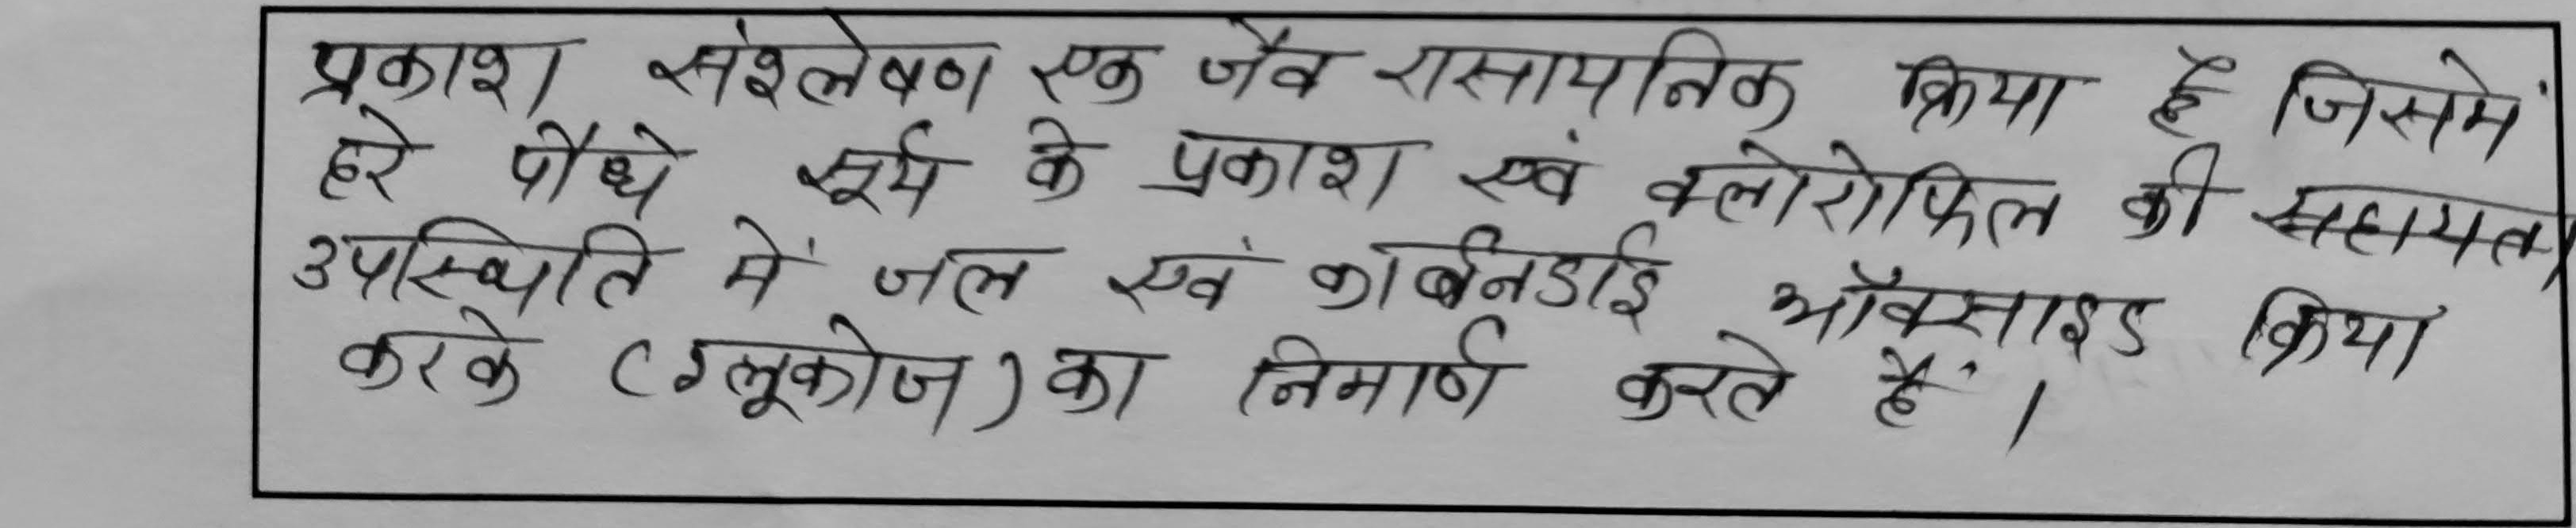 प्रकाश संश्लेषण एक जैव रासायनिक क्रिया है जिसमें
हरे पौधे सूर्य के प्रकाश एवं क्लोरोफिल की सहायता
उपस्थिति में जल एवं कार्बनडाई ऑक्साइड क्रिया
करके (ग्लूकोज) का निमार्ण करते हैं।